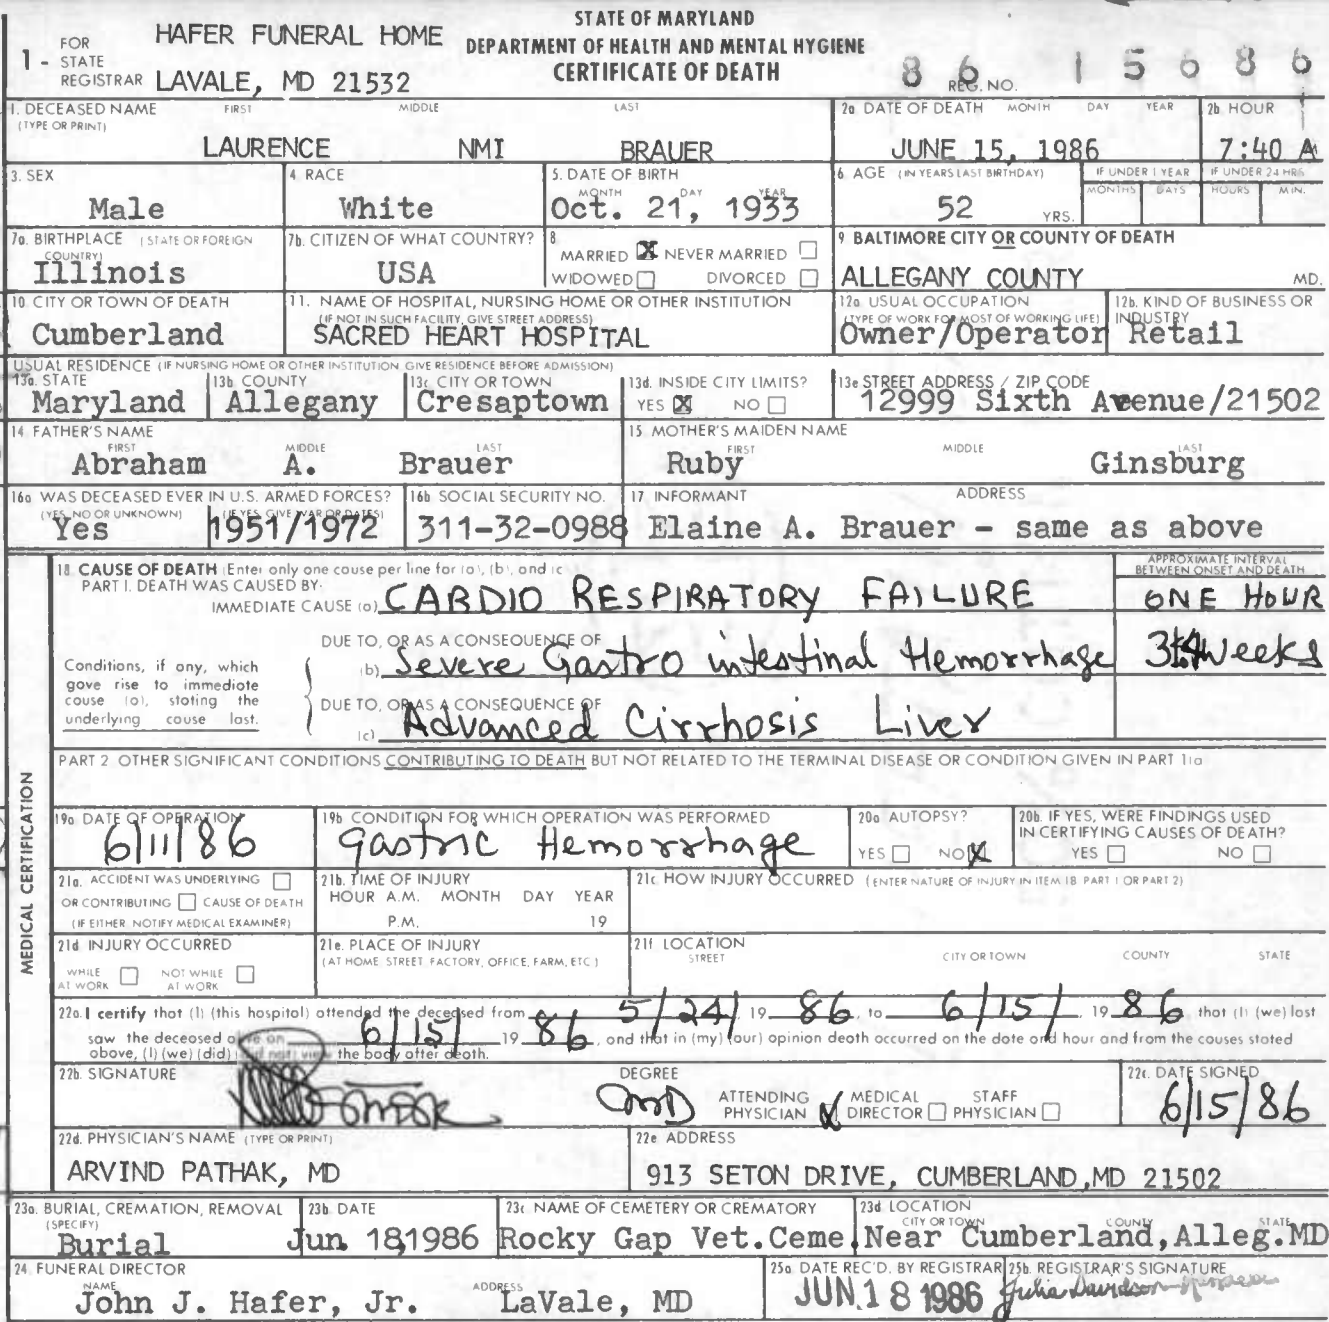 STATE OF MARYLAND
DEPARTMENT OF HEALTH AND MENTAL HYGIENE
CERTIFICATE OF DEATH
1 - FOR STATE REGISTRAR
HAFER FUNERAL HOME
LAVALE, MD 21532
86 15686
REG. NO.
1. DECEASED NAME (TYPE OR PRINT) FIRST MIDDLE LAST
LAURENCE NMI BRAUER
2a. DATE OF DEATH MONTH DAY YEAR
JUNE 15, 1986
2b. HOUR
7:40 A
3. SEX
Male
4. RACE
White
5. DATE OF BIRTH MONTH DAY YEAR
Oct. 21, 1933
6. AGE (IN YEARS LAST BIRTHDAY)
52 YRS.
IF UNDER 1 YEAR MONTHS DAYS
IF UNDER 24 HRS HOURS MIN.
7a. BIRTHPLACE (STATE OR FOREIGN COUNTRY)
Illinois
7b. CITIZEN OF WHAT COUNTRY?
USA
8. MARRIED X NEVER MARRIED
WIDOWED DIVORCED
9. BALTIMORE CITY OR COUNTY OF DEATH
ALLEGANY COUNTY MD.
10. CITY OR TOWN OF DEATH
Cumberland
11. NAME OF HOSPITAL, NURSING HOME OR OTHER INSTITUTION
(IF NOT IN SUCH FACILITY, GIVE STREET ADDRESS)
SACRED HEART HOSPITAL
12a. USUAL OCCUPATION
(TYPE OF WORK FOR MOST OF WORKING LIFE)
Owner/Operator
12b. KIND OF BUSINESS OR INDUSTRY
Retail
USUAL RESIDENCE (IF NURSING HOME OR OTHER INSTITUTION GIVE RESIDENCE BEFORE ADMISSION)
13a. STATE
Maryland
13b. COUNTY
Allegany
13c. CITY OR TOWN
Cresaptown
13d. INSIDE CITY LIMITS?
YES X NO
13e. STREET ADDRESS / ZIP CODE
12999 Sixth Avenue/21502
14. FATHER'S NAME FIRST MIDDLE LAST
Abraham A. Brauer
15. MOTHER'S MAIDEN NAME FIRST MIDDLE LAST
Ruby Ginsburg
16a. WAS DECEASED EVER IN U.S. ARMED FORCES?
(YES, NO OR UNKNOWN) (IF YES, GIVE WAR OR DATES)
Yes 1951/1972
16b. SOCIAL SECURITY NO.
311-32-0988
17. INFORMANT ADDRESS
Elaine A. Brauer - same as above
18. CAUSE OF DEATH (Enter only one cause per line for (a), (b), and (c)
PART I. DEATH WAS CAUSED BY:
APPROXIMATE INTERVAL BETWEEN ONSET AND DEATH
IMMEDIATE CAUSE (a) CARDIO RESPIRATORY FAILURE ONE HOUR
Conditions, if any, which gave rise to immediate cause (a), stating the underlying cause last.
DUE TO, OR AS A CONSEQUENCE OF
(b) Severe Gastro intestinal Hemorrhage Weeks
DUE TO, OR AS A CONSEQUENCE OF
(c) Advanced Cirrhosis Liver
PART 2. OTHER SIGNIFICANT CONDITIONS CONTRIBUTING TO DEATH BUT NOT RELATED TO THE TERMINAL DISEASE OR CONDITION GIVEN IN PART 1(a)
MEDICAL CERTIFICATION
19a. DATE OF OPERATION
6/11/86
19b. CONDITION FOR WHICH OPERATION WAS PERFORMED
Gastric Hemorrhage
20a. AUTOPSY?
YES NO X
20b. IF YES, WERE FINDINGS USED IN CERTIFYING CAUSES OF DEATH?
YES NO
21a. ACCIDENT WAS UNDERLYING
OR CONTRIBUTING CAUSE OF DEATH
(IF EITHER, NOTIFY MEDICAL EXAMINER)
21b. TIME OF INJURY
HOUR A.M. MONTH DAY YEAR
P.M. 19
21c. HOW INJURY OCCURRED (ENTER NATURE OF INJURY IN ITEM 18 PART 1 OR PART 2)
21d. INJURY OCCURRED
WHILE AT WORK NOT WHILE AT WORK
21e. PLACE OF INJURY
(AT HOME, STREET, FACTORY, OFFICE, FARM, ETC.)
21f. LOCATION
STREET CITY OR TOWN COUNTY STATE
22a. I certify that (I) (this hospital) attended the deceased from 5/24/ 19 86, to 6/15/, 19 86 that (I) (we) last
saw the deceased alive on 6/15/ 19 86, and that in (my) (our) opinion death occurred on the date and hour and from the causes stated
above, (I) (we) (did) (did not) view the body after death.
22b. SIGNATURE
DEGREE
MD
ATTENDING PHYSICIAN X MEDICAL DIRECTOR STAFF PHYSICIAN
22c. DATE SIGNED
6/15/86
22d. PHYSICIAN'S NAME (TYPE OR PRINT)
ARVIND PATHAK, MD
22e. ADDRESS
913 SETON DRIVE, CUMBERLAND,MD 21502
23a. BURIAL, CREMATION, REMOVAL (SPECIFY)
Burial
23b. DATE
Jun. 18,1986
23c. NAME OF CEMETERY OR CREMATORY
Rocky Gap Vet.Ceme.
23d. LOCATION CITY OR TOWN COUNTY STATE
Near Cumberland,Alleg.MD
24. FUNERAL DIRECTOR
NAME ADDRESS
John J. Hafer, Jr. LaVale, MD
25a. DATE REC'D. BY REGISTRAR
JUN 18 1986
25b. REGISTRAR'S SIGNATURE
Julia Davidson